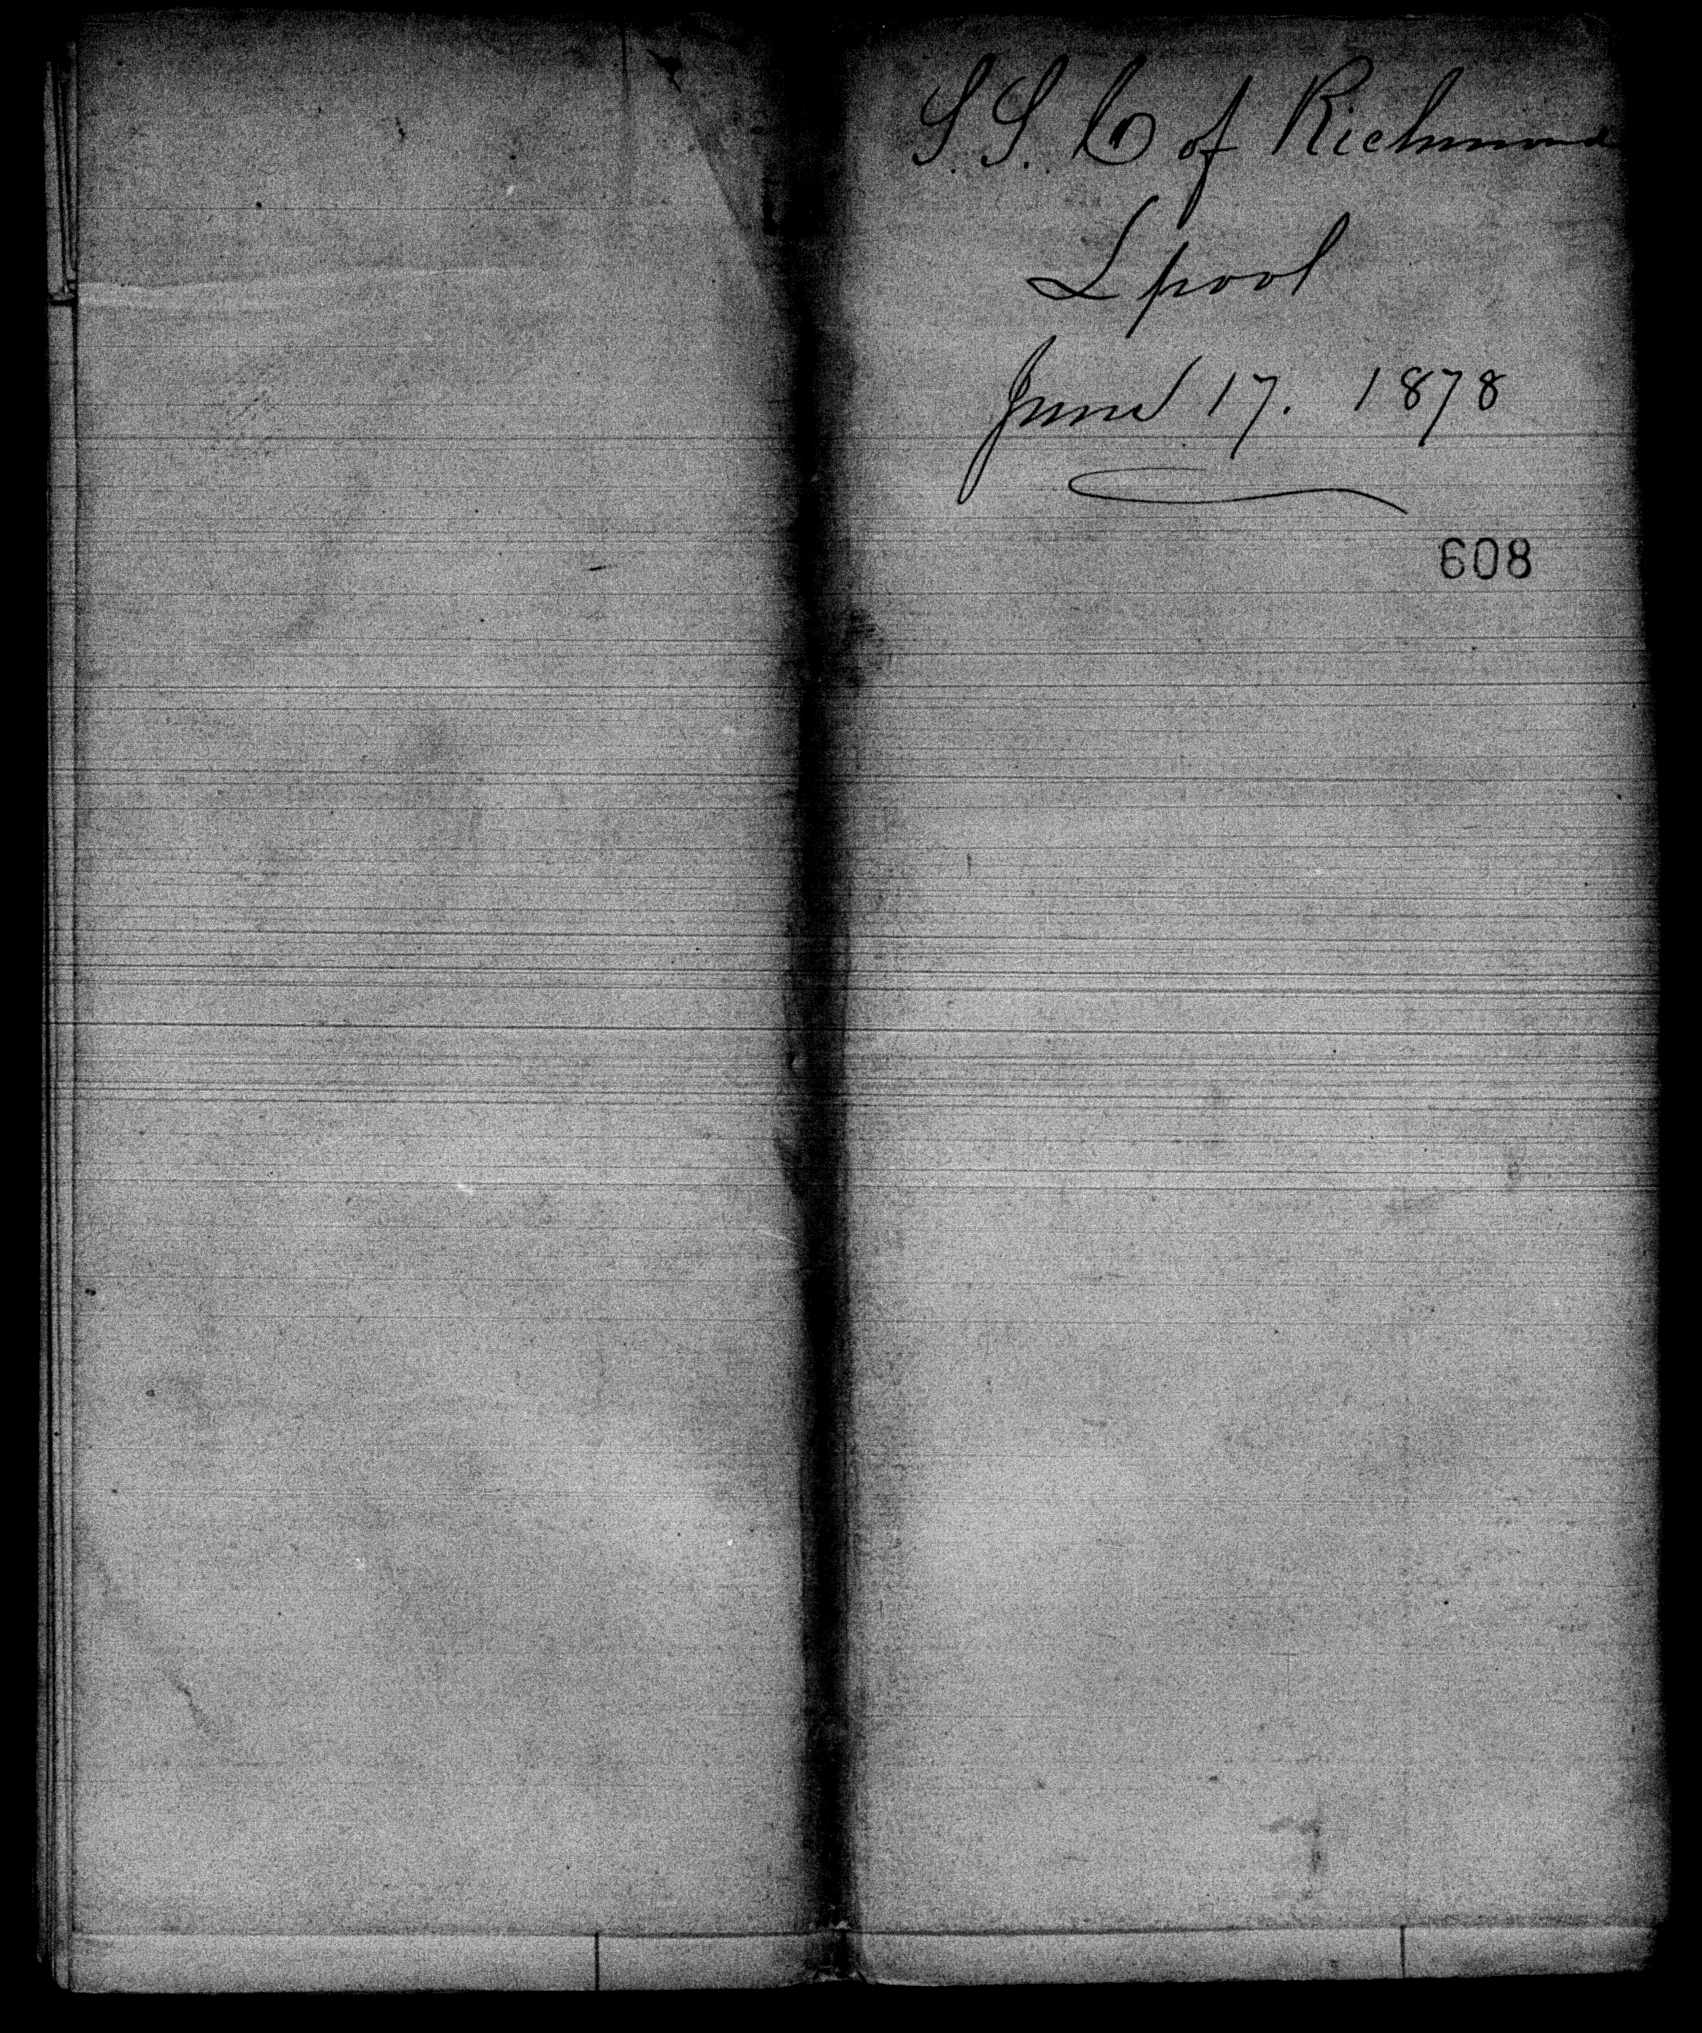 S.S. C of Richmond
Lpool
June 17. 1878
608